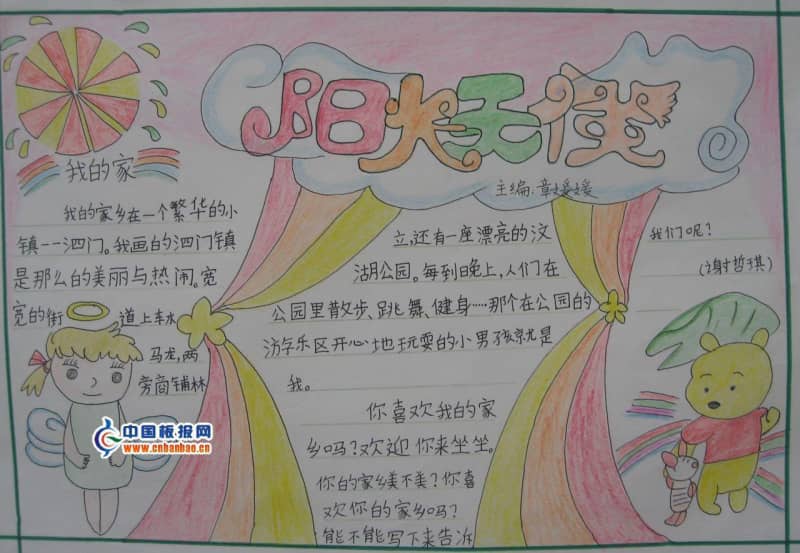 阳光天使
主编:章媛媛
我的家
我的家乡在一个繁华的小
镇——泗门。我画的泗门镇
是那么的美丽与热闹。宽
宽的街道上车水
马龙,两
旁商铺林
立,还有一座漂亮的汶
湖公园。每到晚上,人们在
公园里散步、跳舞、健身……那个在公园的
游乐区开心地玩耍的小男孩就是
我。
你喜欢我的家
乡吗?欢迎你来坐坐。
你的家乡美不美?你喜
欢你的家乡吗?
能不能写下来告诉
我们呢?
(谢哲琪)
中国板报网
www.cnbanbao.cn